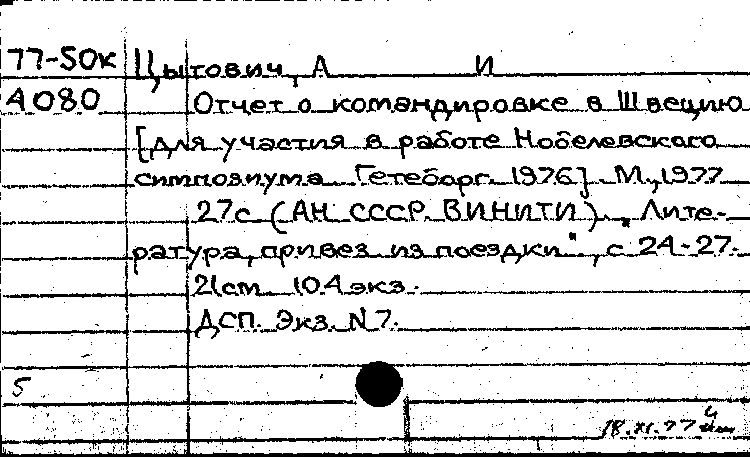 77-50к Цытович, А И
А080 Отчет о командировке в Швецию
[для участия в работе Нобелевского
симпозиума. Гетеборг. 1976]. М., 1977
27с (АН СССР. ВИНИТИ). „Лите-
ратура, привез из поездки", с 24-27.
21см. 104экз.
ДСП. Экз. N7.
5
18.XI.77